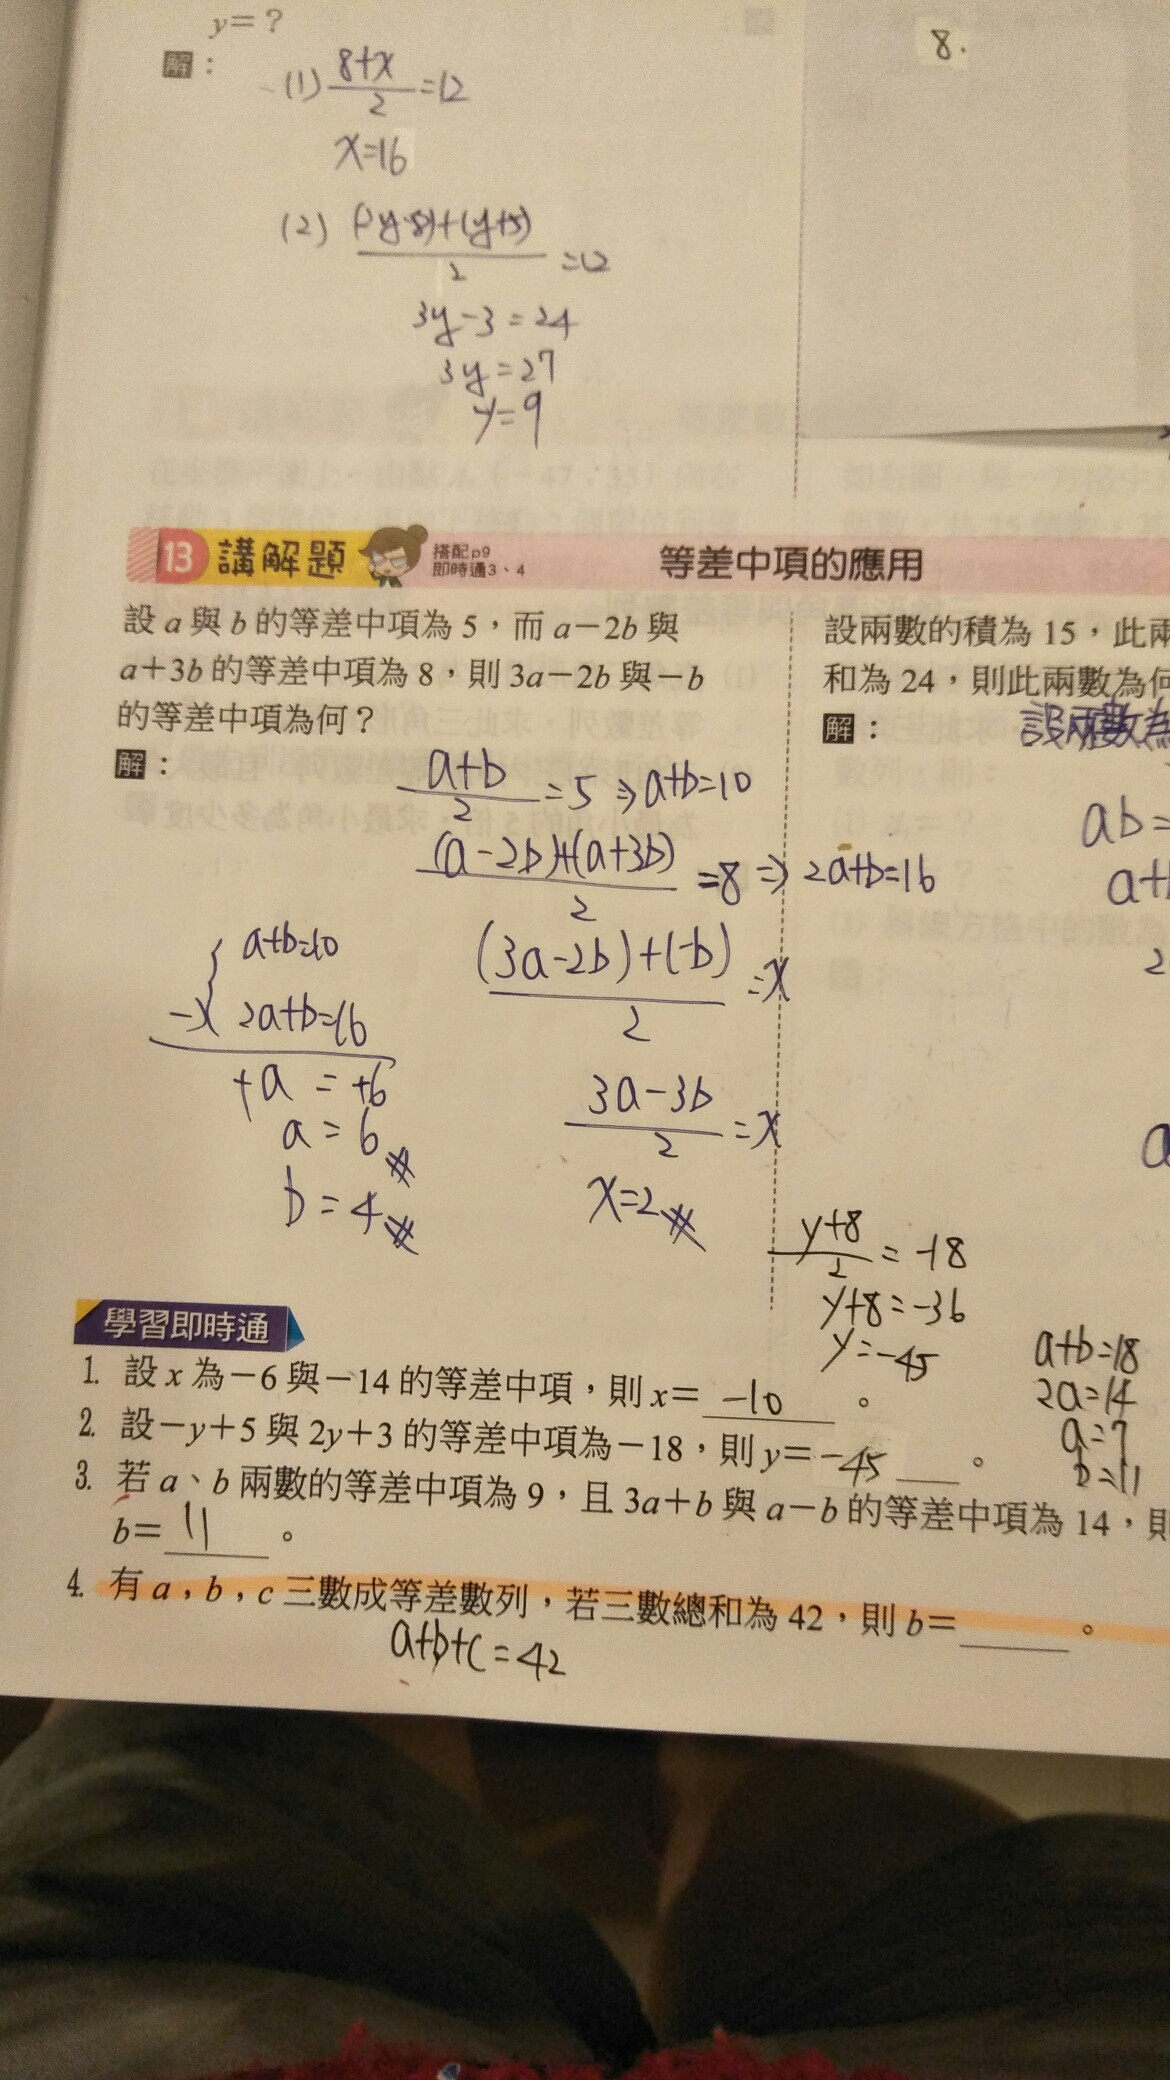 y=?
8.
解：
(1) 8+x/2=12
x=16
(2) (2y-8)+(y+5)/2=12
3y-3=24
3y=27
y=9
13 講解題 搭配p9 即時通3、4 等差中項的應用
設a與b的等差中項為5，而a-2b與
a+3b的等差中項為8，則3a-2b與-b
的等差中項為何？
解：
a+b/2=5⇒a+b=10
(a-2b)+(a+3b)/2=8⇒2a+b=16
(3a-2b)+(-b)/2=x
3a-3b/2=x
x=2
a+b=10
-) 2a+b=16
+a=+6
a=6
b=4
設兩數的積為15，此兩
和為24，則此兩數為何
解：設兩數為
ab=
a+
2
a
y+8/2=-18
y+8=-36
y=-45
a+b=18
2a=14
a=7
b=11
學習即時通
1. 設x為-6與-14的等差中項，則x=-10。
2. 設-y+5與2y+3的等差中項為-18，則y=-45。
3. 若a、b兩數的等差中項為9，且3a+b與a-b的等差中項為14，則
b=11。
4. 有a，b，c三數成等差數列，若三數總和為42，則b=____。
a+b+c=42